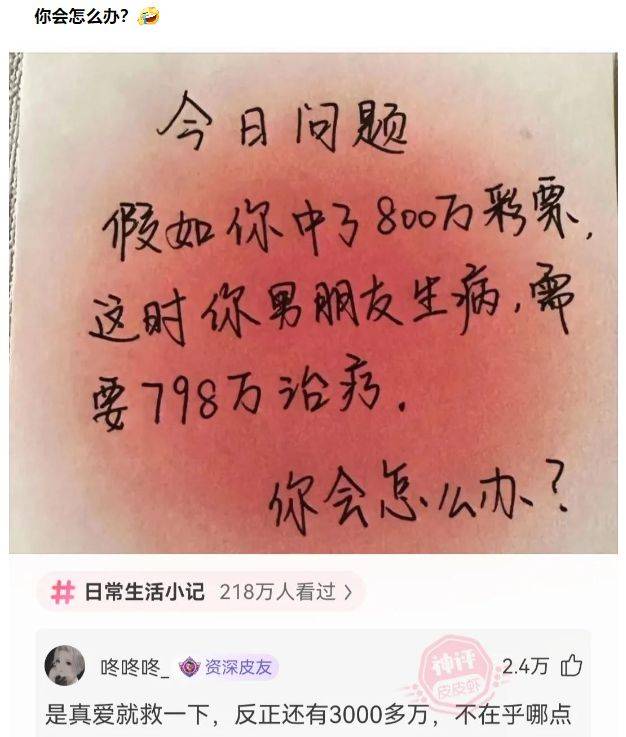 你会怎么办？🤣
今日问题
假如你中了800万彩票，
这时你男朋友生病，需
要798万治疗．
你会怎么办？
# 日常生活小记 218万人看过 >
咚咚咚_ 资深皮友 神评 皮皮虾 2.4万
是真爱就救一下，反正还有3000多万，不在乎哪点